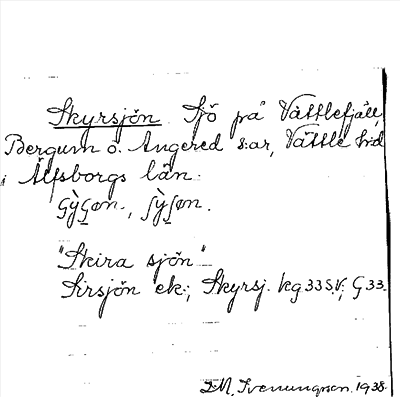 Skyrsjön Sjö på Vättlefjäll,
Bergum o. Angered s:ar, Vättle hd
i Älfsborgs län.
"Skira sjön"
Sirsjön ek.; Skyrsj. kg 33 S.V; G 33.
1938.